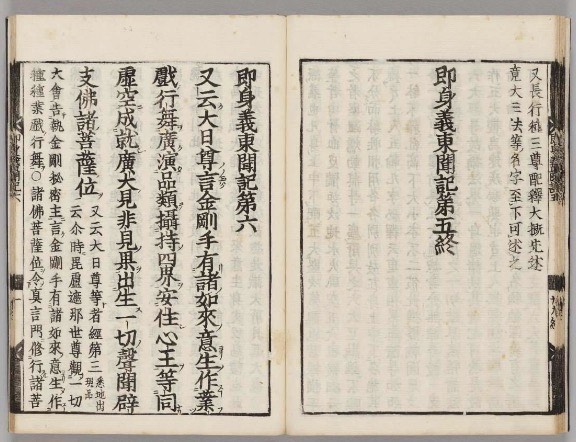 又長行種三尊配釋大概先述
竟大三法等名字至下可述之
即身義東聞記第五終
即身義東聞記第六
又云大日尊言金剛手有諸如來意生作業
戲行舞廣演品類攝持四界安住心王等同
虛空成就廣大見非見果出生一切聲聞辟
支佛諸菩薩位
又云大日尊等者經第三悉地出現品
云佘時毘盧遮那世尊觀一切
大會告執金剛秘密主言金剛手有諸如來意生作
種種業戲行舞○諸佛菩薩位令真言門修行諸菩